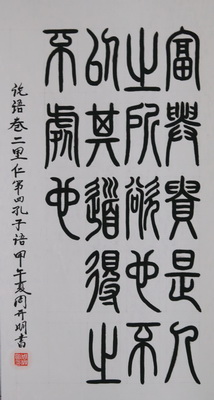 富與貴是人
之所欲也不
以其道得之
不處也
论语卷二里仁第四孔子语甲午夏周开明書